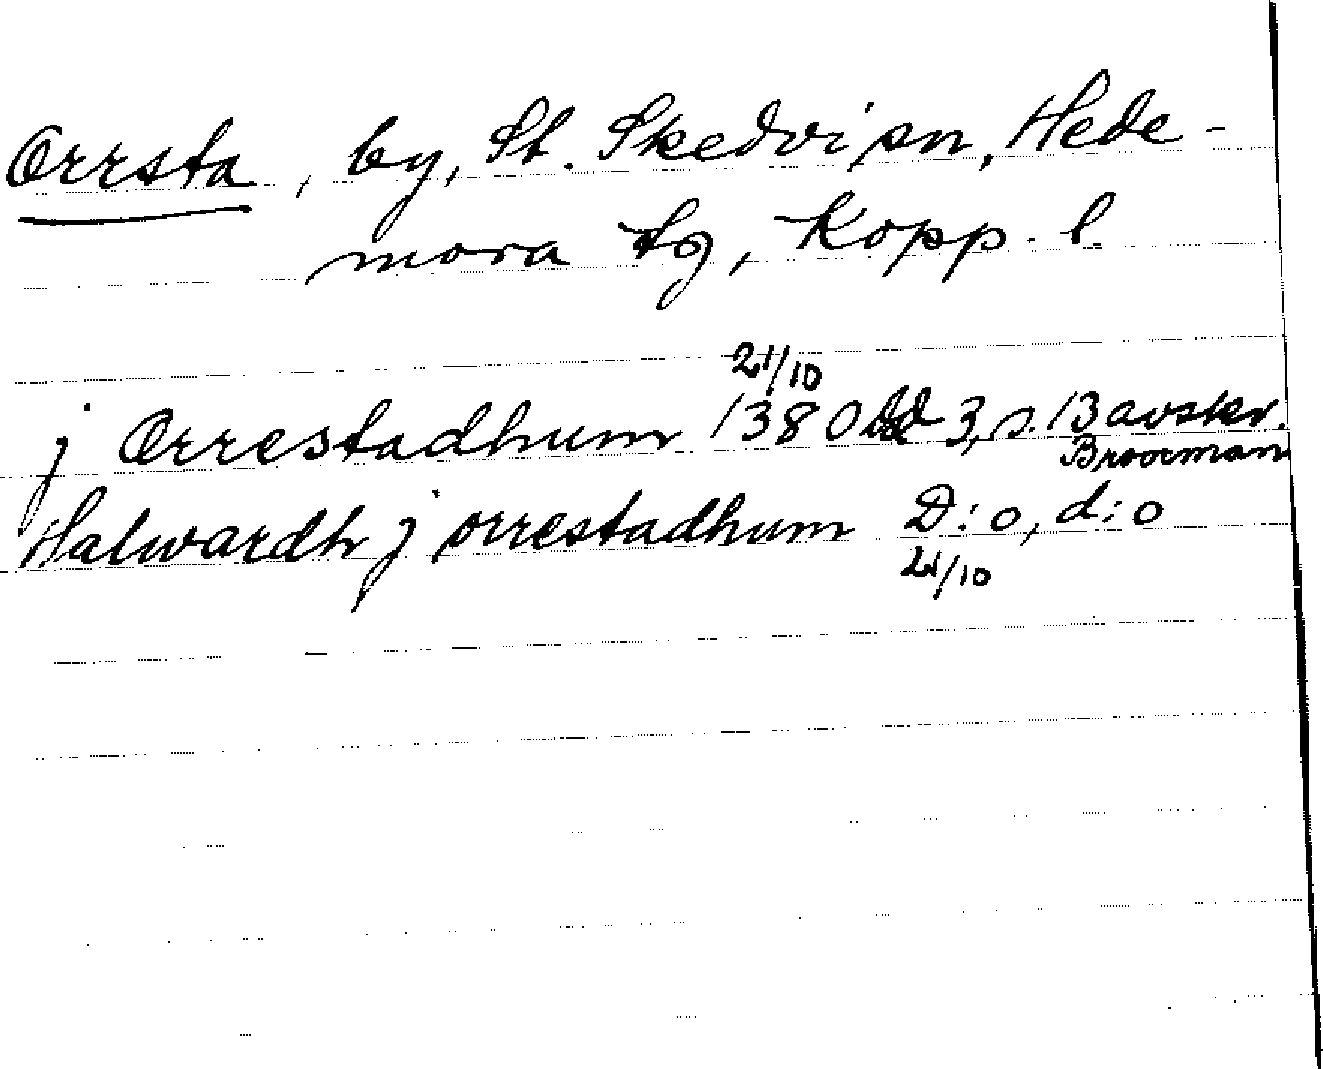 Orrsta, by, St. Skedvi sn, Hede-
mora tg, Kopp. l.
21/10
j Orrestadhum 1380 3, s. 13 avskr.
Broocman
Halwardh j orrestadhum D:o, d:o
21/10